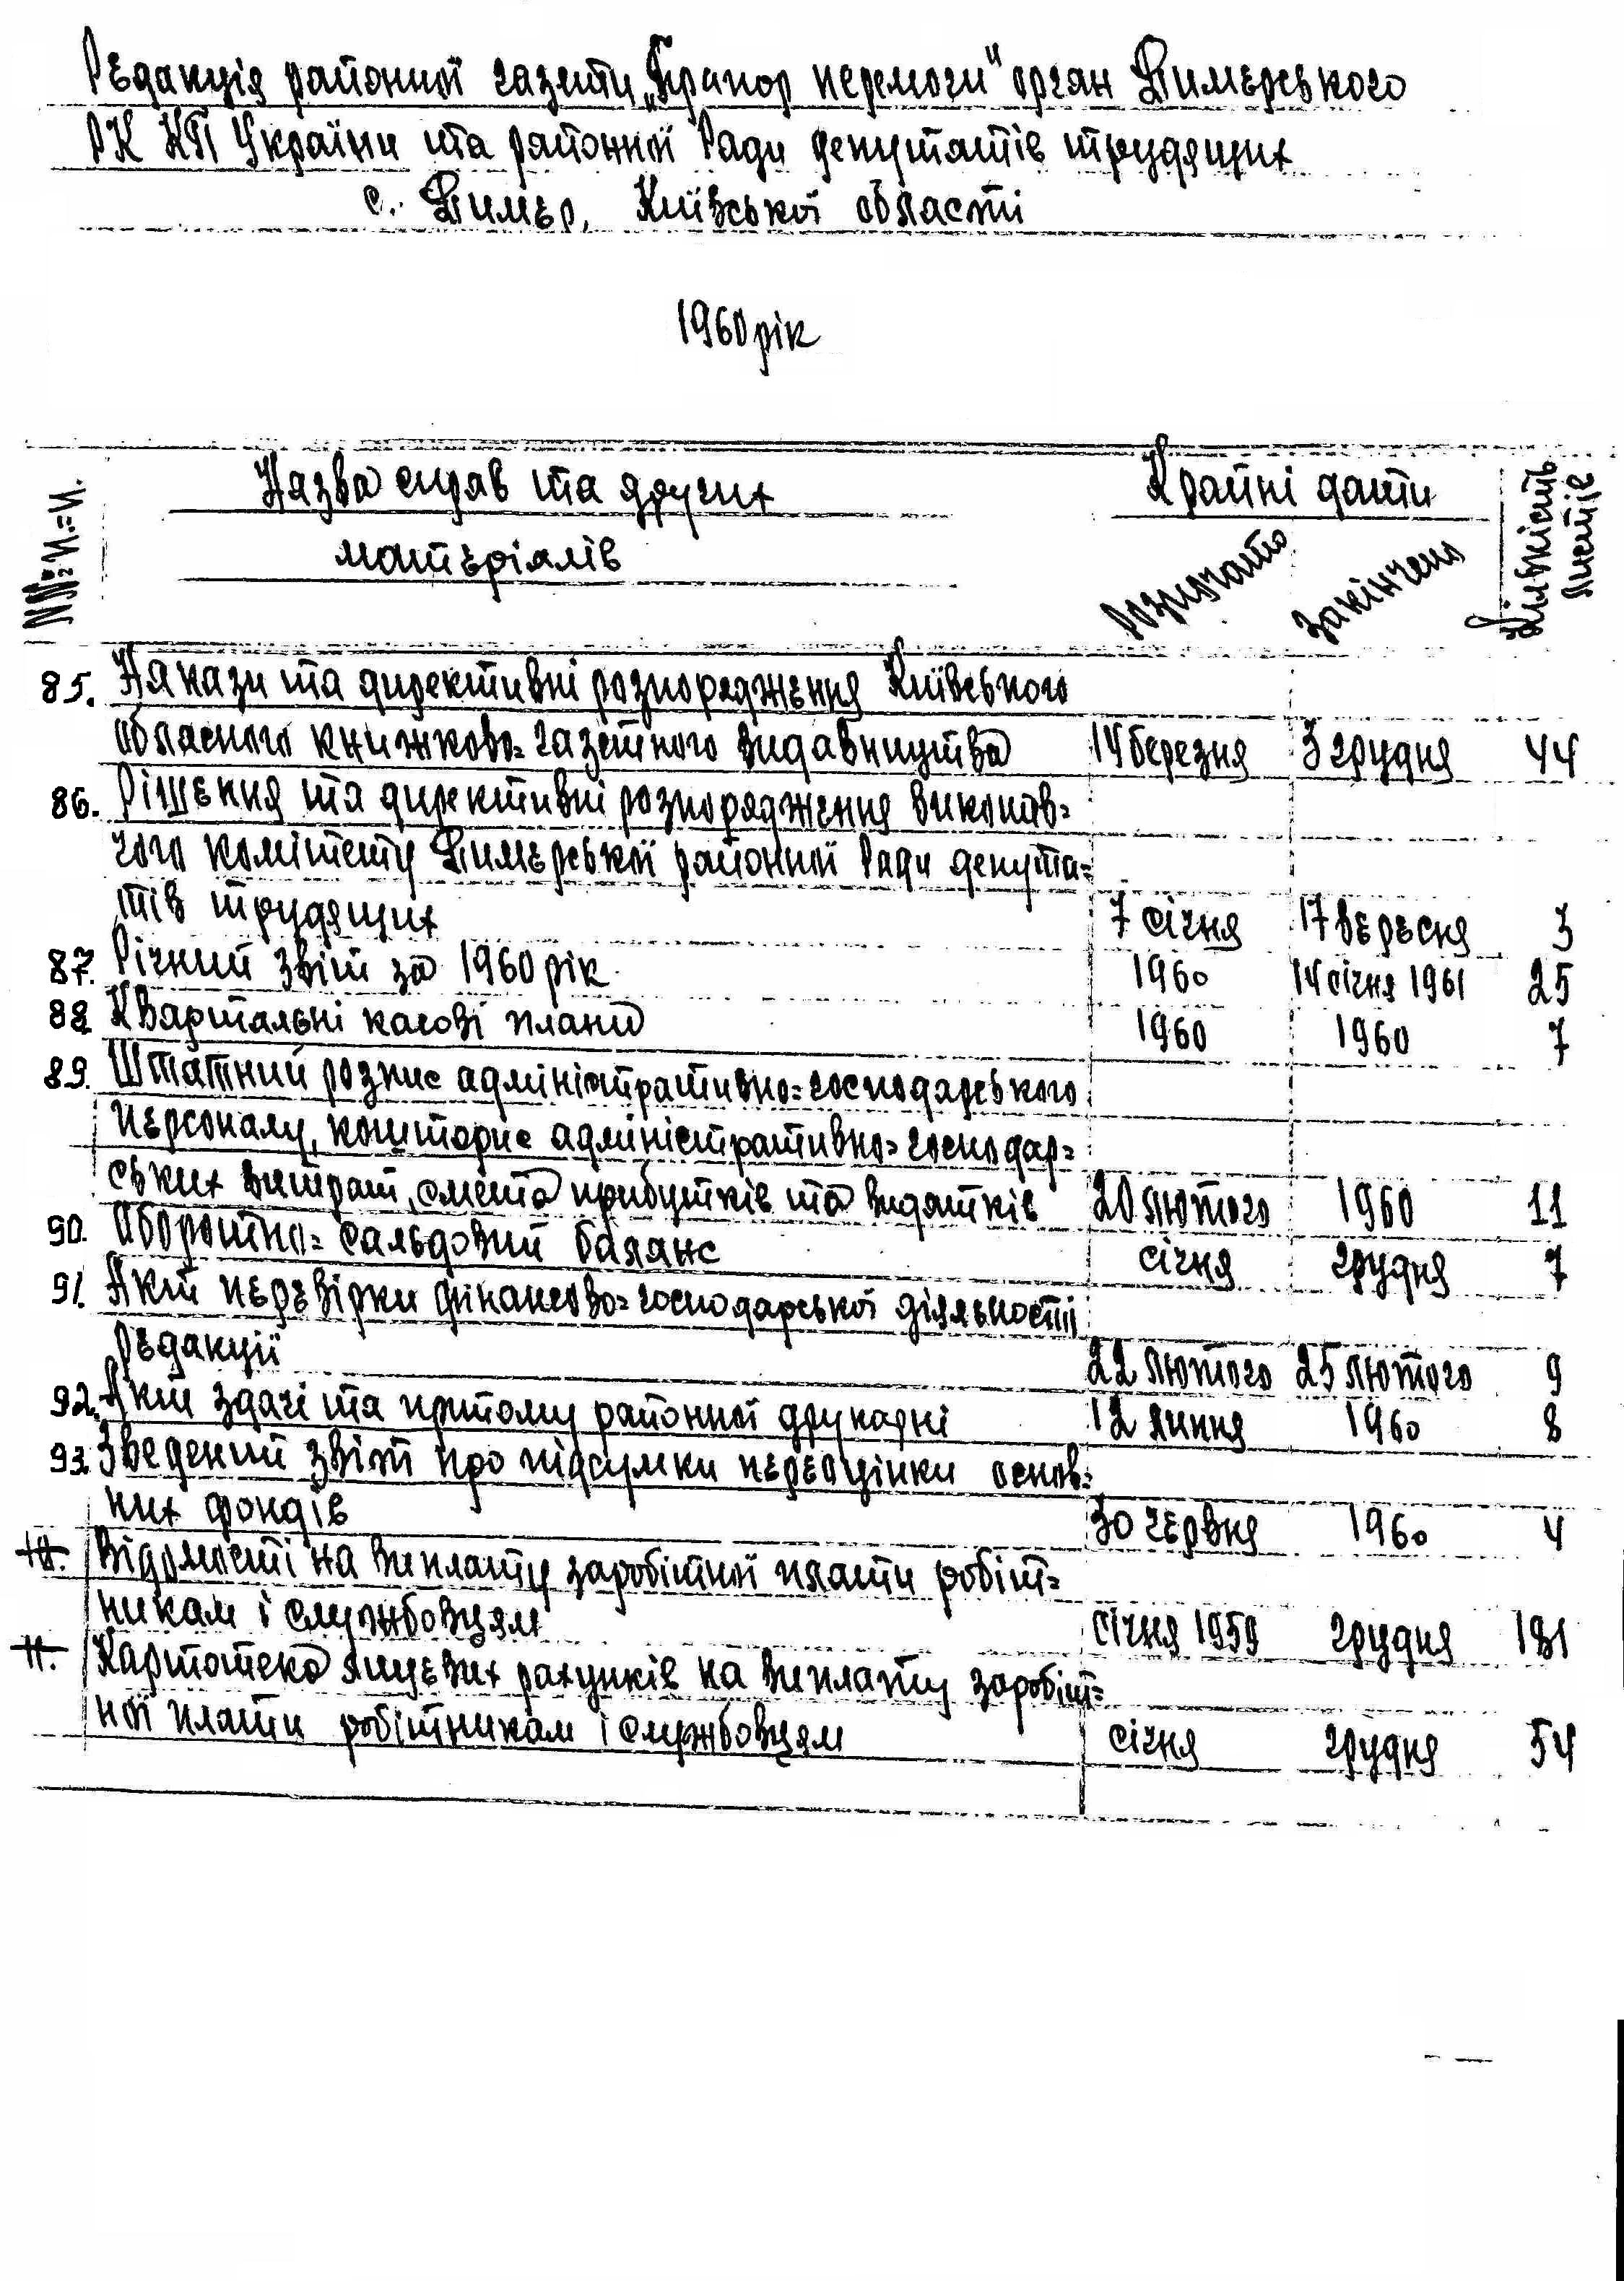 Редакція районної газети „Прапор перемоги" орган Димерського
РК КП України та районної Ради депутатів трудящих
с. Димер, Київської області
1960 рік
№№ п.=п.
Назва справ та других
матеріялів
Крайні дати
Розпочато
Закінчено
Кількість
листів
85. Накази та директивні розпорядження Київського
обласного книжково=газетного видавництва 14 березня 3 грудня 44
86. Рішення та директивні розпорядження виконав=
чого комітету Димерської районної Ради депута=
тів трудящих 7 січня 17 вересня 3
87. Річний звіт за 1960 рік 1960 14 січня 1961 25
88. Квартальні касові плани 1960 1960 7
89. Штатний розпис адміністративно=господарського
персоналу, кошторис адміністративно=господар=
ських витрат, смета прибутків та видатків 20 лютого 1960 11
90. Оборотно=сальдовий баланс січня грудня 7
91. Акт перевірки фінансово=господарської діяльності
редакції 22 лютого 25 лютого 9
92. Акт здачі та прийому районної друкарні 12 липня 1960 8
93. Зведений звіт про підсумки переоцінки основ=
них фондів 30 червня 1960 4
10. Відомості на виплату заробітної плати робіт=
никам і службовцям січня 1959 грудня 181
11. Картотека лицевих рахунків на виплату заробіт=
ної плати робітникам і службовцям січня грудня 54